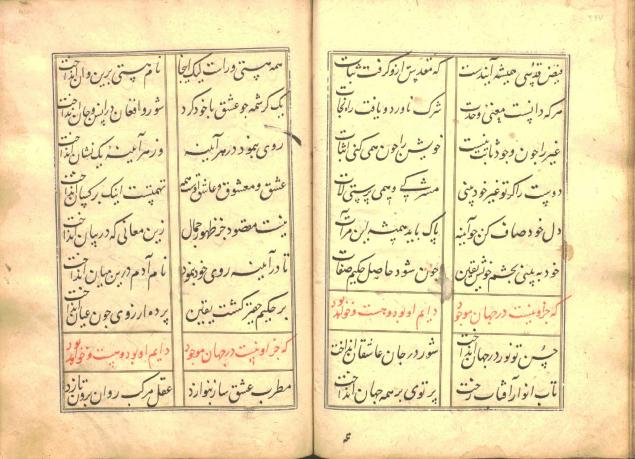 فیض قدسی همیشه آیندست که مقدس ازو گرفت ثبات
هر که دانست معنی وحدت شرک ناورد و یافت راه نجات
غیر را چون وجود ثابت نیست خویش را چون همی کنی اثبات
دوست را گر تو غیر خود بینی مشرکی و همی پرستی لات
دل خود صاف کن چو آینه پاک باید همیشه این مرآت
خود به بینی بچشم خویش یقین چون شود حاصل حکیم صفات
که جز او نیست در جهان موجود دایم او بود و هست و خواهد بود
حسن تو نور در جهان انداخت شور در جان عاشقان انداخت
تاب انوار آفتاب رخت پرتوی بر همه جهان انداخت
همه هستی ورات لیک اینجا نام هستی برین و آن انداخت
یک کرشمه چو عشق با خود کرد شور و افغان در انس و جان انداخت
روی بنمود در هر آیینه وز هر آیینه یک نشان انداخت
عشق و معشوق و عاشق اوست همه تهمت اینک بر کسان انداخت
نیست مقصود جز ظهور جمال زین معانی که در بیان انداخت
تا در آینه روی خود بنمود نام آدم درین میان انداخت
بر حکیم حقیر گشت یقین پرده از روی چون عیان انداخت
که جز او نیست در جهان موجود دایم او بود و هست و خواهد بود
مطرب عشق ساز بنوازد عقل مرکب روان برون تازد